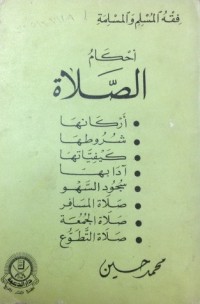 فقه المسلم والمسلمة
أحكام
الصلاة
• أركانها
• شروطها
• كيفياتها
• آدابها
• سجود السهو
• صلاة المسافر
• صلاة الجمعة
• صلاة التطوع
محمد حسين